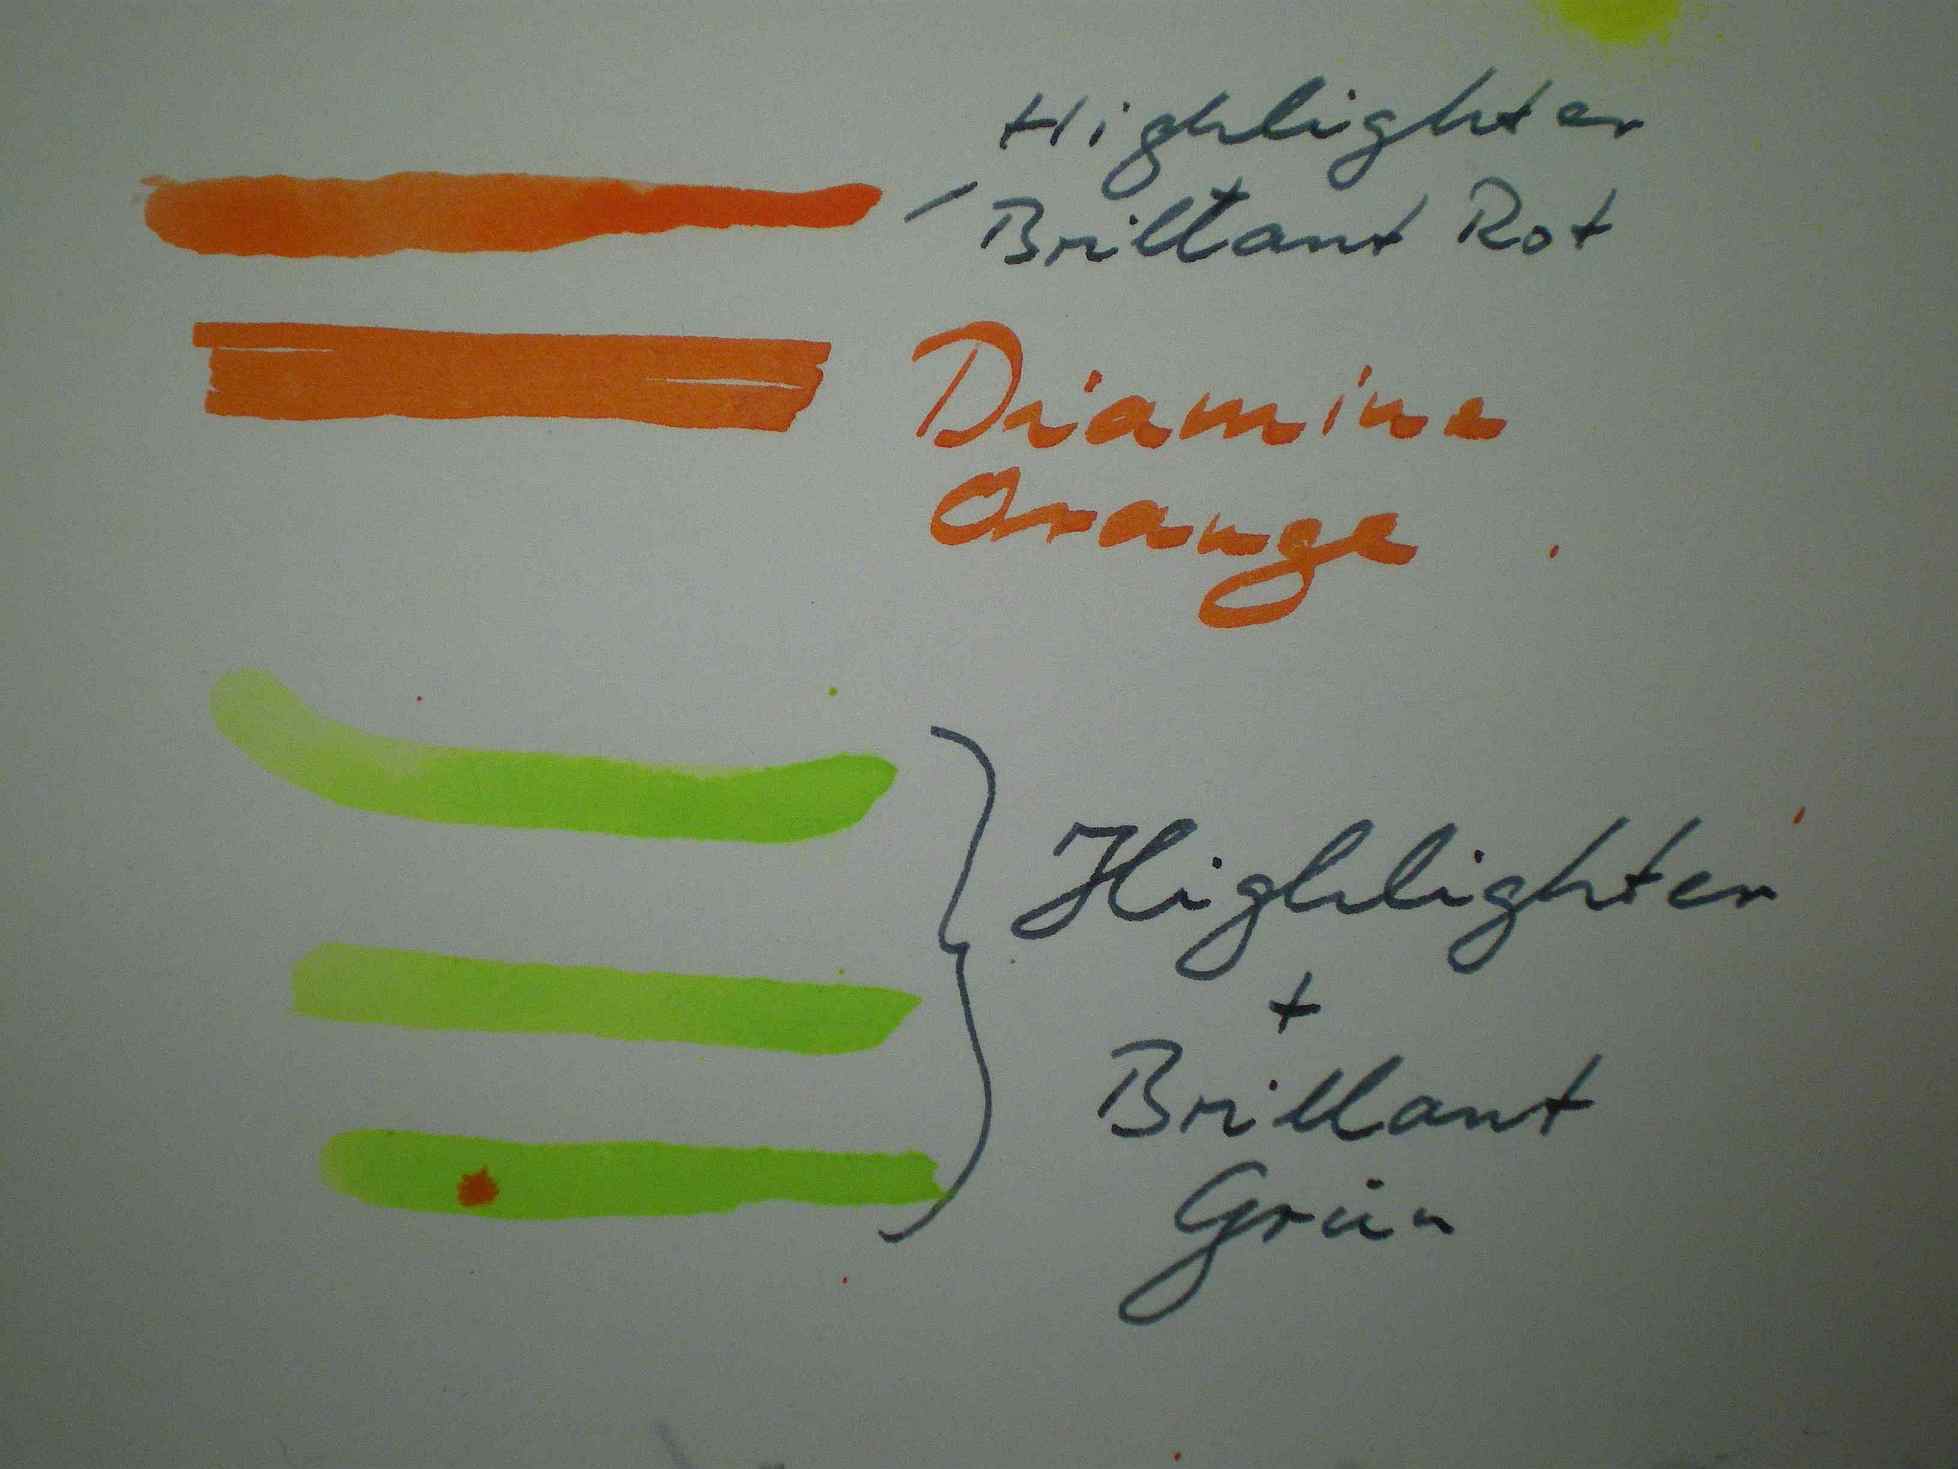 Highlighter
/ Brillant Rot
Diamine
Orange
Highlighter
+
Brillant
Grün